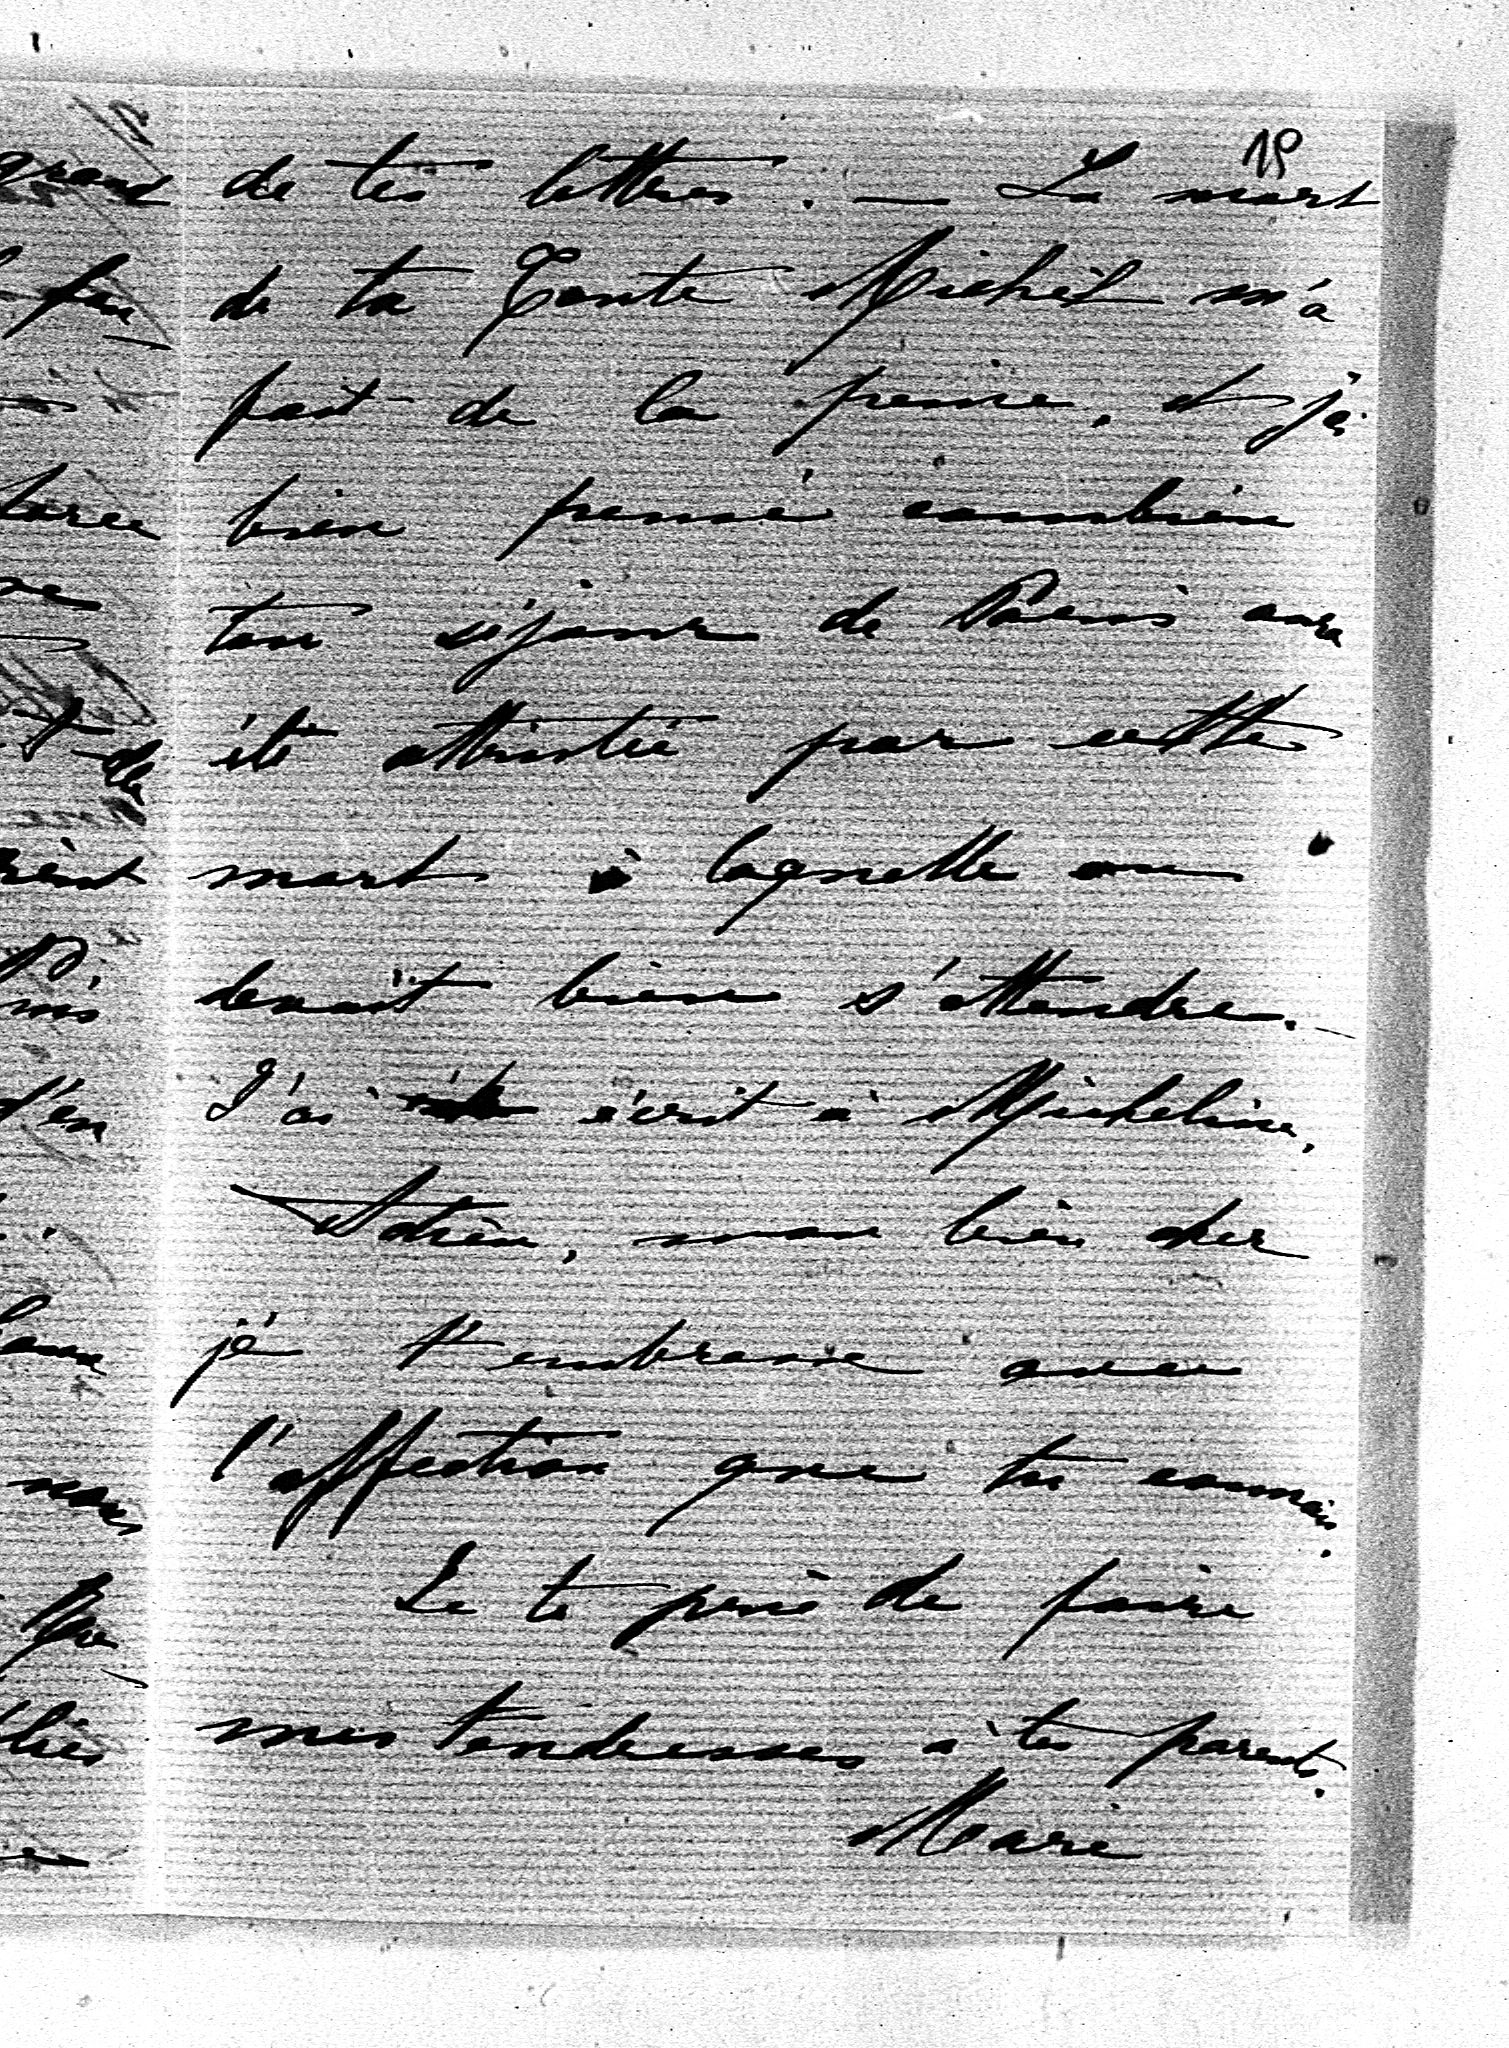 19
de tes lettres. — La mort
de ta Tante Michel m'a
fait de la peine, et j'ai
bien pensé combien
ton séjour de Paris aura
été attristé par cette
mort à laquelle on
devait bien s'attendre. —
J'ai écrit à Micheline.
Adieu, mon bien cher
je t'embrasse avec
l'affection que tu connais.
Je te prie de faire
mes tendresses à tes parents.
Marie
grand
de
d'en
nous